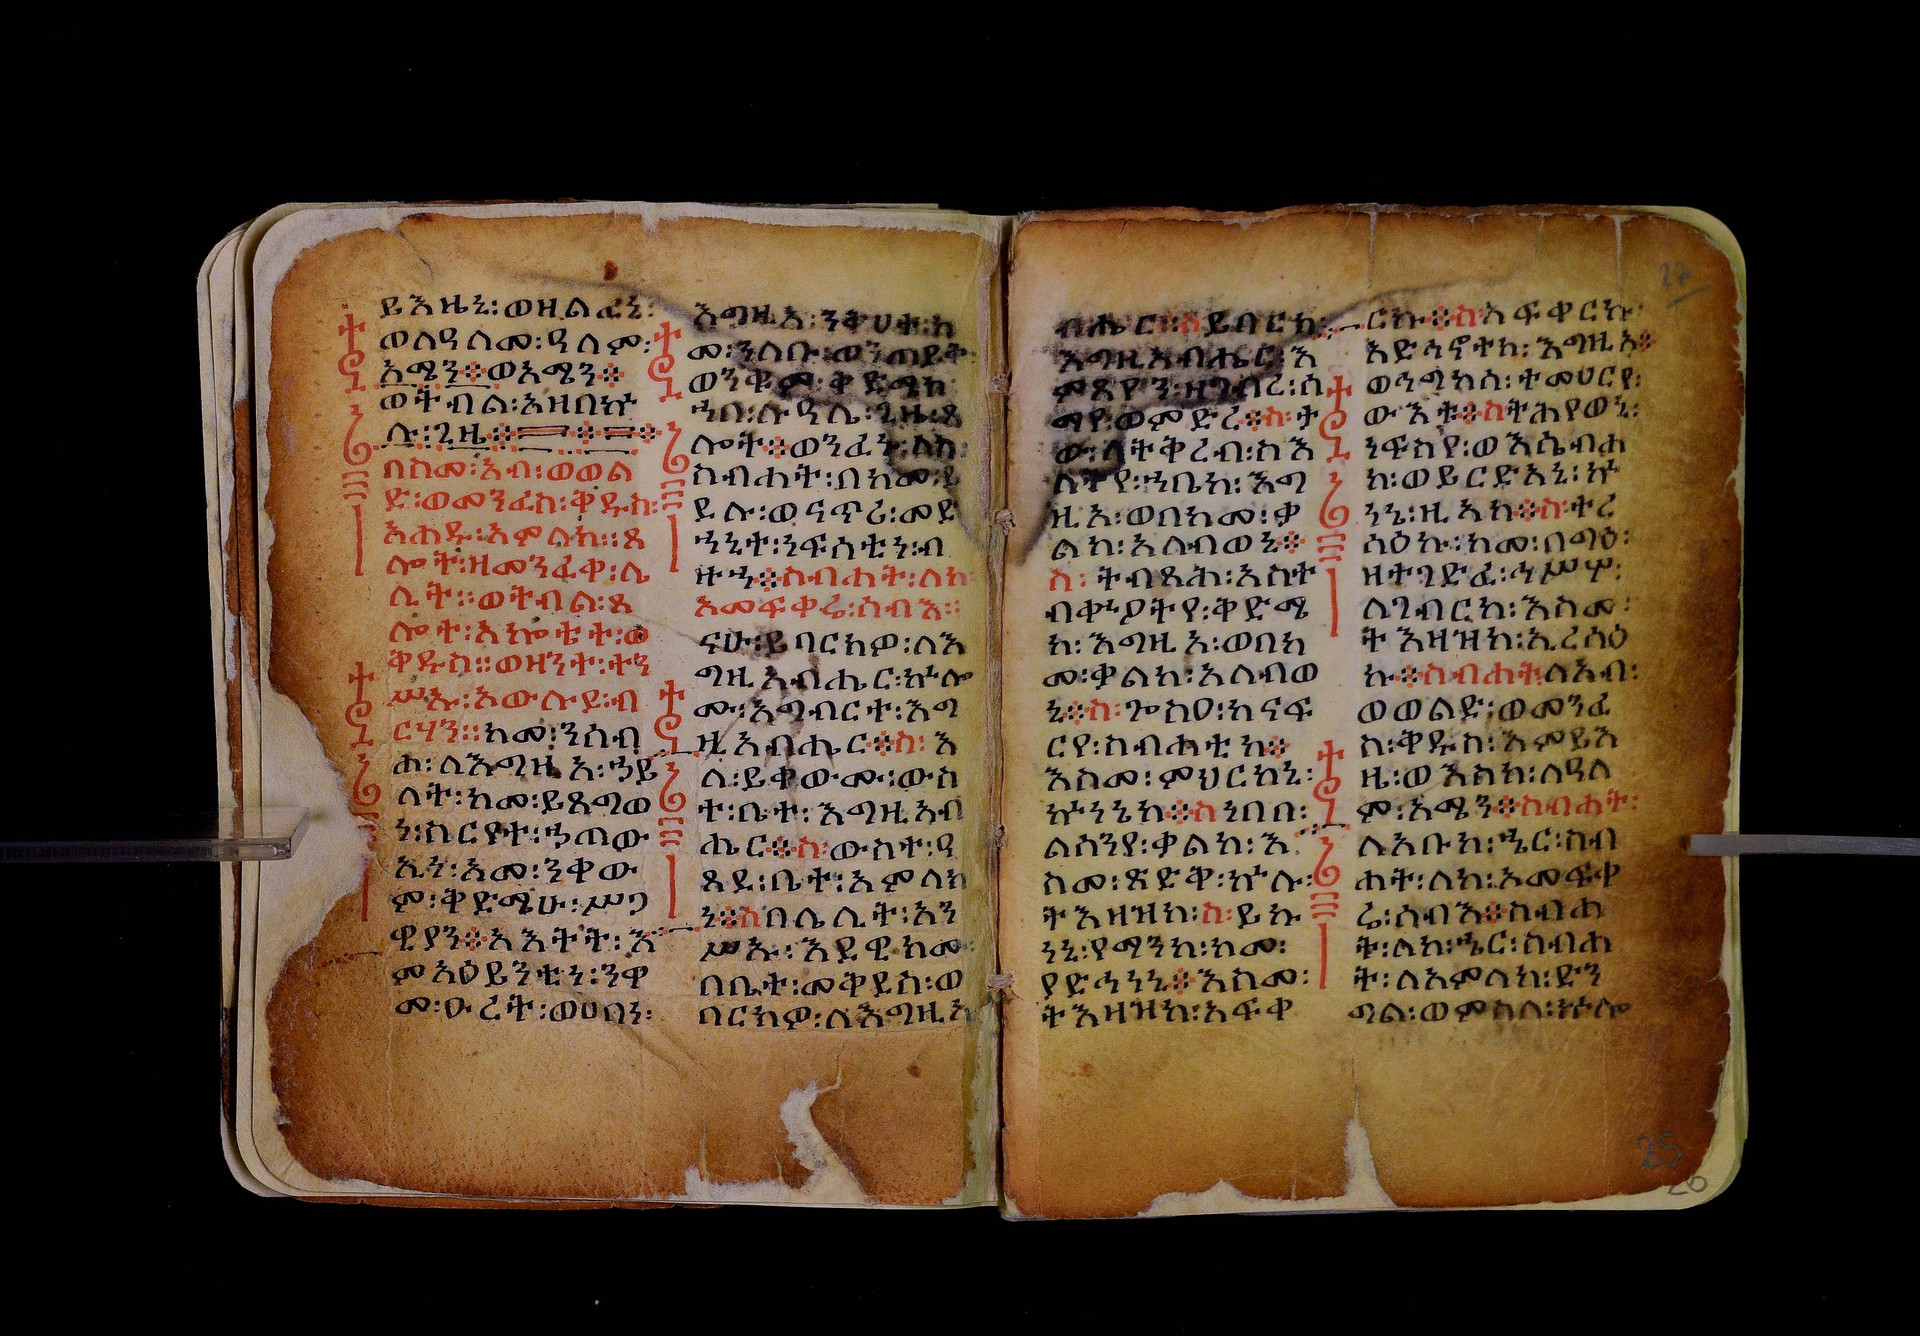 ይእዜኒ፡ወዘልፈኒ፡
ወለዓለመ፡ዓለም፡
አሜን፨ወአሜን፨
ወትብል፡እዘበኵ
ሉ፡ጊዜ፨
በስመ፡አብ፡ወወል
ድ፡ወመንፈስ፡ቅዱስ፡
አሐዱ፡አምላክ፡፡ጸ
ሎት፡ዘመንፈቀ፡ሌ
ሊት፡፡ወትብል፡ጸ
ሎት፡አኰቴት፡ወ
ቅዱስ፡፡ወዘንተ፡ተን
ሥኡ፡አውሉደ፡ብ
ርሃን፡፡ከመ፡ንሰብ
ሐ፡ለእግዚአ፡ኃይ
ላት፡ከመ፡ይጸግወ
ነ፡ስርየተ፡ኃጢው
ኢነ፡አመ፡ንቀው
ም፡ቅድሜሁ፡ሥጋ
ዊያን፨አእትት፡እ
ምአዕይንቲነ፡ንዋ
መ፡ዑረት፡ወሀበነ፡
እግዚአ፡ንቅሀተ፡ከ
መ፡ንለቡ፡ወንጠይቅ
ወንቁም፡ቅድሜከ
ኀበ፡ሉዓሌ፡ጊዜ፡ጸ
ሎት፨ወንፈኑ፡ለከ፡
ስብሐተ፡በከመ፡ይ
ደሉ፡ወናጥሪ፡መድ
ኀኒተ፡ነፍሳቲነ፡ብ
ዙኀ፨ስብሐት፡ለከ፡
አመፍቀሬ፡ሰብእ፡፡
ናሁ፡ይባርክዎ፡ለእ
ግዚአብሔር፡ኵሎ
ሙ፡አግብርተ፡እግ
ዚአብሔር፨ስ፡እ
ለ፡ይቀውሙ፡ውስ
ተ፡ቤተ፡እግዚአብ
ሔር፨ስ፡ውስተ፡ዓ
ጸደ፡ቤተ፡አምላክ
ነ፨ስበሌሊት፡አን
ሥኡ፡እደዊክሙ፡
በቤተ፡መቅደስ፡ወ
ባርክዎ፡ለእግዚአ
ብሔር፡፡ስይባርክ፡
እግዚአብሔር፡እ
ምጽዮን፡ዘገብረ፡ሰ
ማየ፡ወምድረ፨ስ፡ት
ው፡ለትቅረብ፡ስእ
ለትየ፡ኀቤከ፡እግ
ዚአ፡ወበከመ፡ቃ
ልከ፡አለብወኒ፨
ስ፡ትብጻሕ፡አስተ
ብቍዖትየ፡ቅድሜ
ከ፡እግዚአ፡ወበከ
መ፡ቃልከ፡አለብወ
ኒ፨ስ፡ጐስዐ፡ከናፍ
ርየ፡ስብሐቲከ፨
እስመ፡ምህርከኒ፡
ኵነኔከ፨ስነበበ፡
ልሳንየ፡ቃልከ፡እ
ስመ፡ጽድቅ፡ኵሉ፡
ትእዛዝከ፡ስ፡ይኩ
ነኒ፡የማንከ፡ከመ፡
ያድኅነኒ፨እስመ፡
ትእዛዝከ፡አፍቀ
ርኩ፨ስ፡አፍቀርኩ
አድኅኖተከ፡እግዚአ፨
ወሕግከሰ፡ተመሀርየ፡
ውእቱ፨ስትሕየወኒ፡
ነፍስየ፡ወእሴብሐ
ከ፡ወይርድአኒ፡ኵ
ነኔ፡ዚአከ፨ስ፡ተረ
ሰዕኩ፡ከመ፡በግዕ፡
ዘተገድፈ፡ኅሥሦ፡
ለገብርከ፡እስመ፡
ትእዛዝከ፡ኢረሳዕ
ኩ፨ስብሐትለአብ፡
ወወልድ፡ወመንፈ
ስ፡ቅዱስ፡እምይእ
ዜ፡ወእስከ፡ለዓለ
ም፡አሜን፨ስብሐት፡
ለአቡከ፡ኄር፡ስብ
ሐት፡ለከ፡አመፍቀ
ሬ፡ሰብእ፨ስብሐ
ት፡ለከ፡ኄር፡ስብሐ
ት፡ለእምላክ፡ድን
ግል፡ወምስለ፡ኵሎ
25